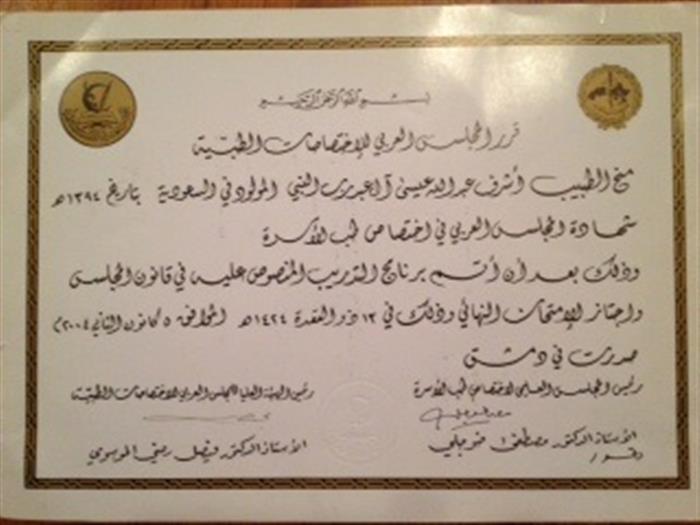 بسم الله الرحمن الرحيم
قرر المجلس العربي للإختصاصات الطبية
منح الطبيب أشرف عبدالله عيسى آل عبدرب النبي المولود في السعودية بتاريخ ١٣٩٤هـ
شهادة المجلس العربي في اختصاص طب الأسرة
وذلك بعد أن أتم برنامج التدريب المنصوص عليه في قانون المجلس
واجتاز الامتحان النهائي وذلك في ١٣ ذو القعدة ١٤٢٤هـ الموافق ٥ كانون الثاني ٢٠٠٤م
صدرت في دمشق
رئيس المجلس العلمي لاختصاص طب الأسرة
رئيس الهيئة العليا للمجلس العربي للاختصاصات الطبية
الأستاذ الدكتور مصطفى
الأستاذ الدكتور فيصل رضي الموسوي